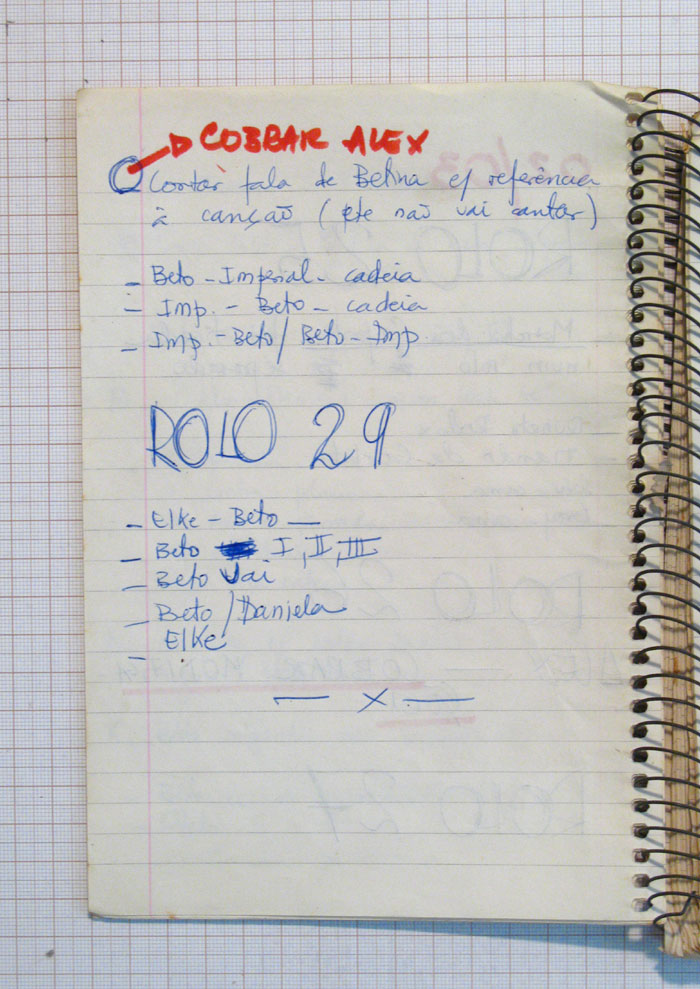 COBRAR ALEX
Cortar fala de Betina c/ referência
à canção (ele não vai cantar)
- Beto - Imperial - cadeia
- Imp. - Beto - cadeia
- Imp. - Beto / Beto - Imp
ROLO 29
- Elke - Beto —
- Beto I, II, III
- Beto Vai
- Beto / Daniela
Elke
-
— x —